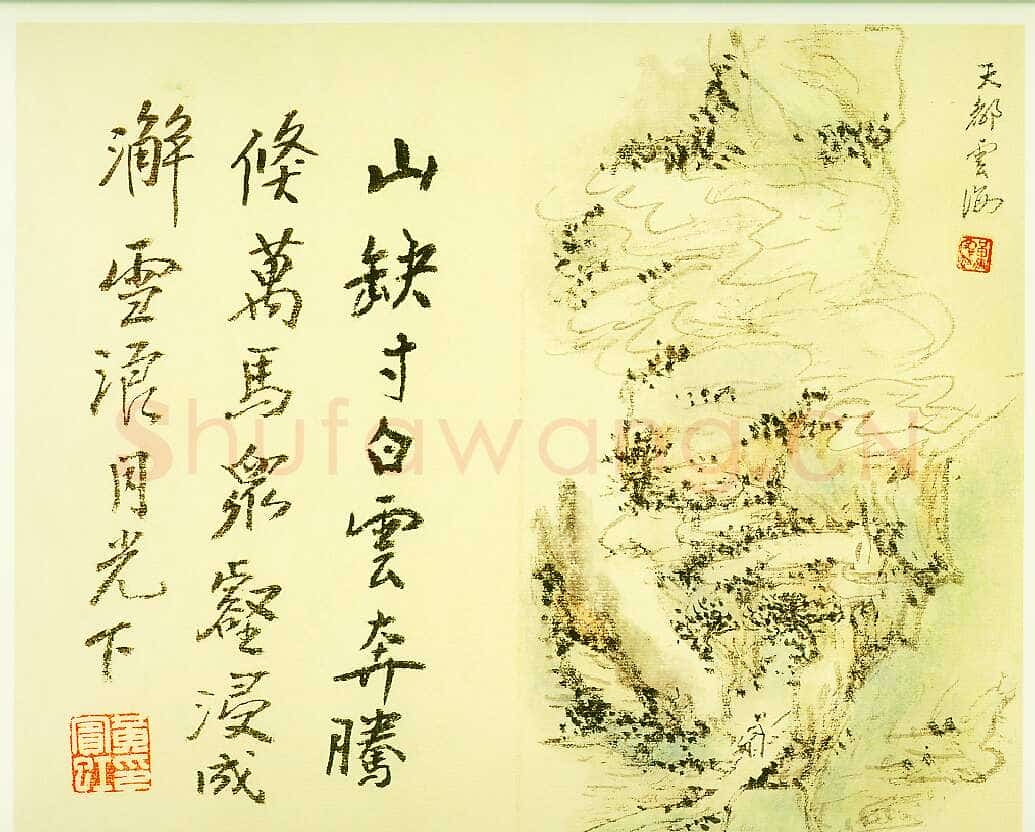 天都雲海
山缺寸白雲奔騰
倏萬馬眾壑浸成
澥雪浪月光下
黃賓虹印
Shufawang.CN